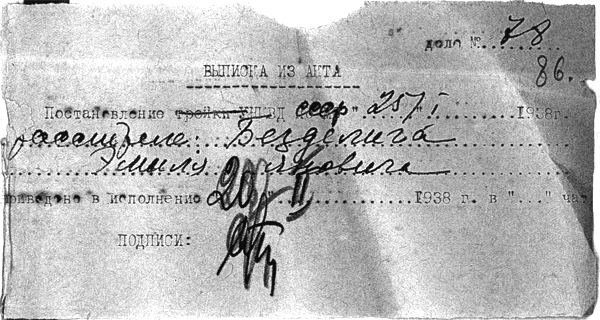 дело №. 78
86.
ВЫПИСКА ИЗ АКТА
Постановление тройки УНКВД СССР "25/I" 1938г.
расстреле: Безделига
Эмиля Яковича
приведено в исполнение 20/II 1938 г. в "..." час
ПОДПИСИ: